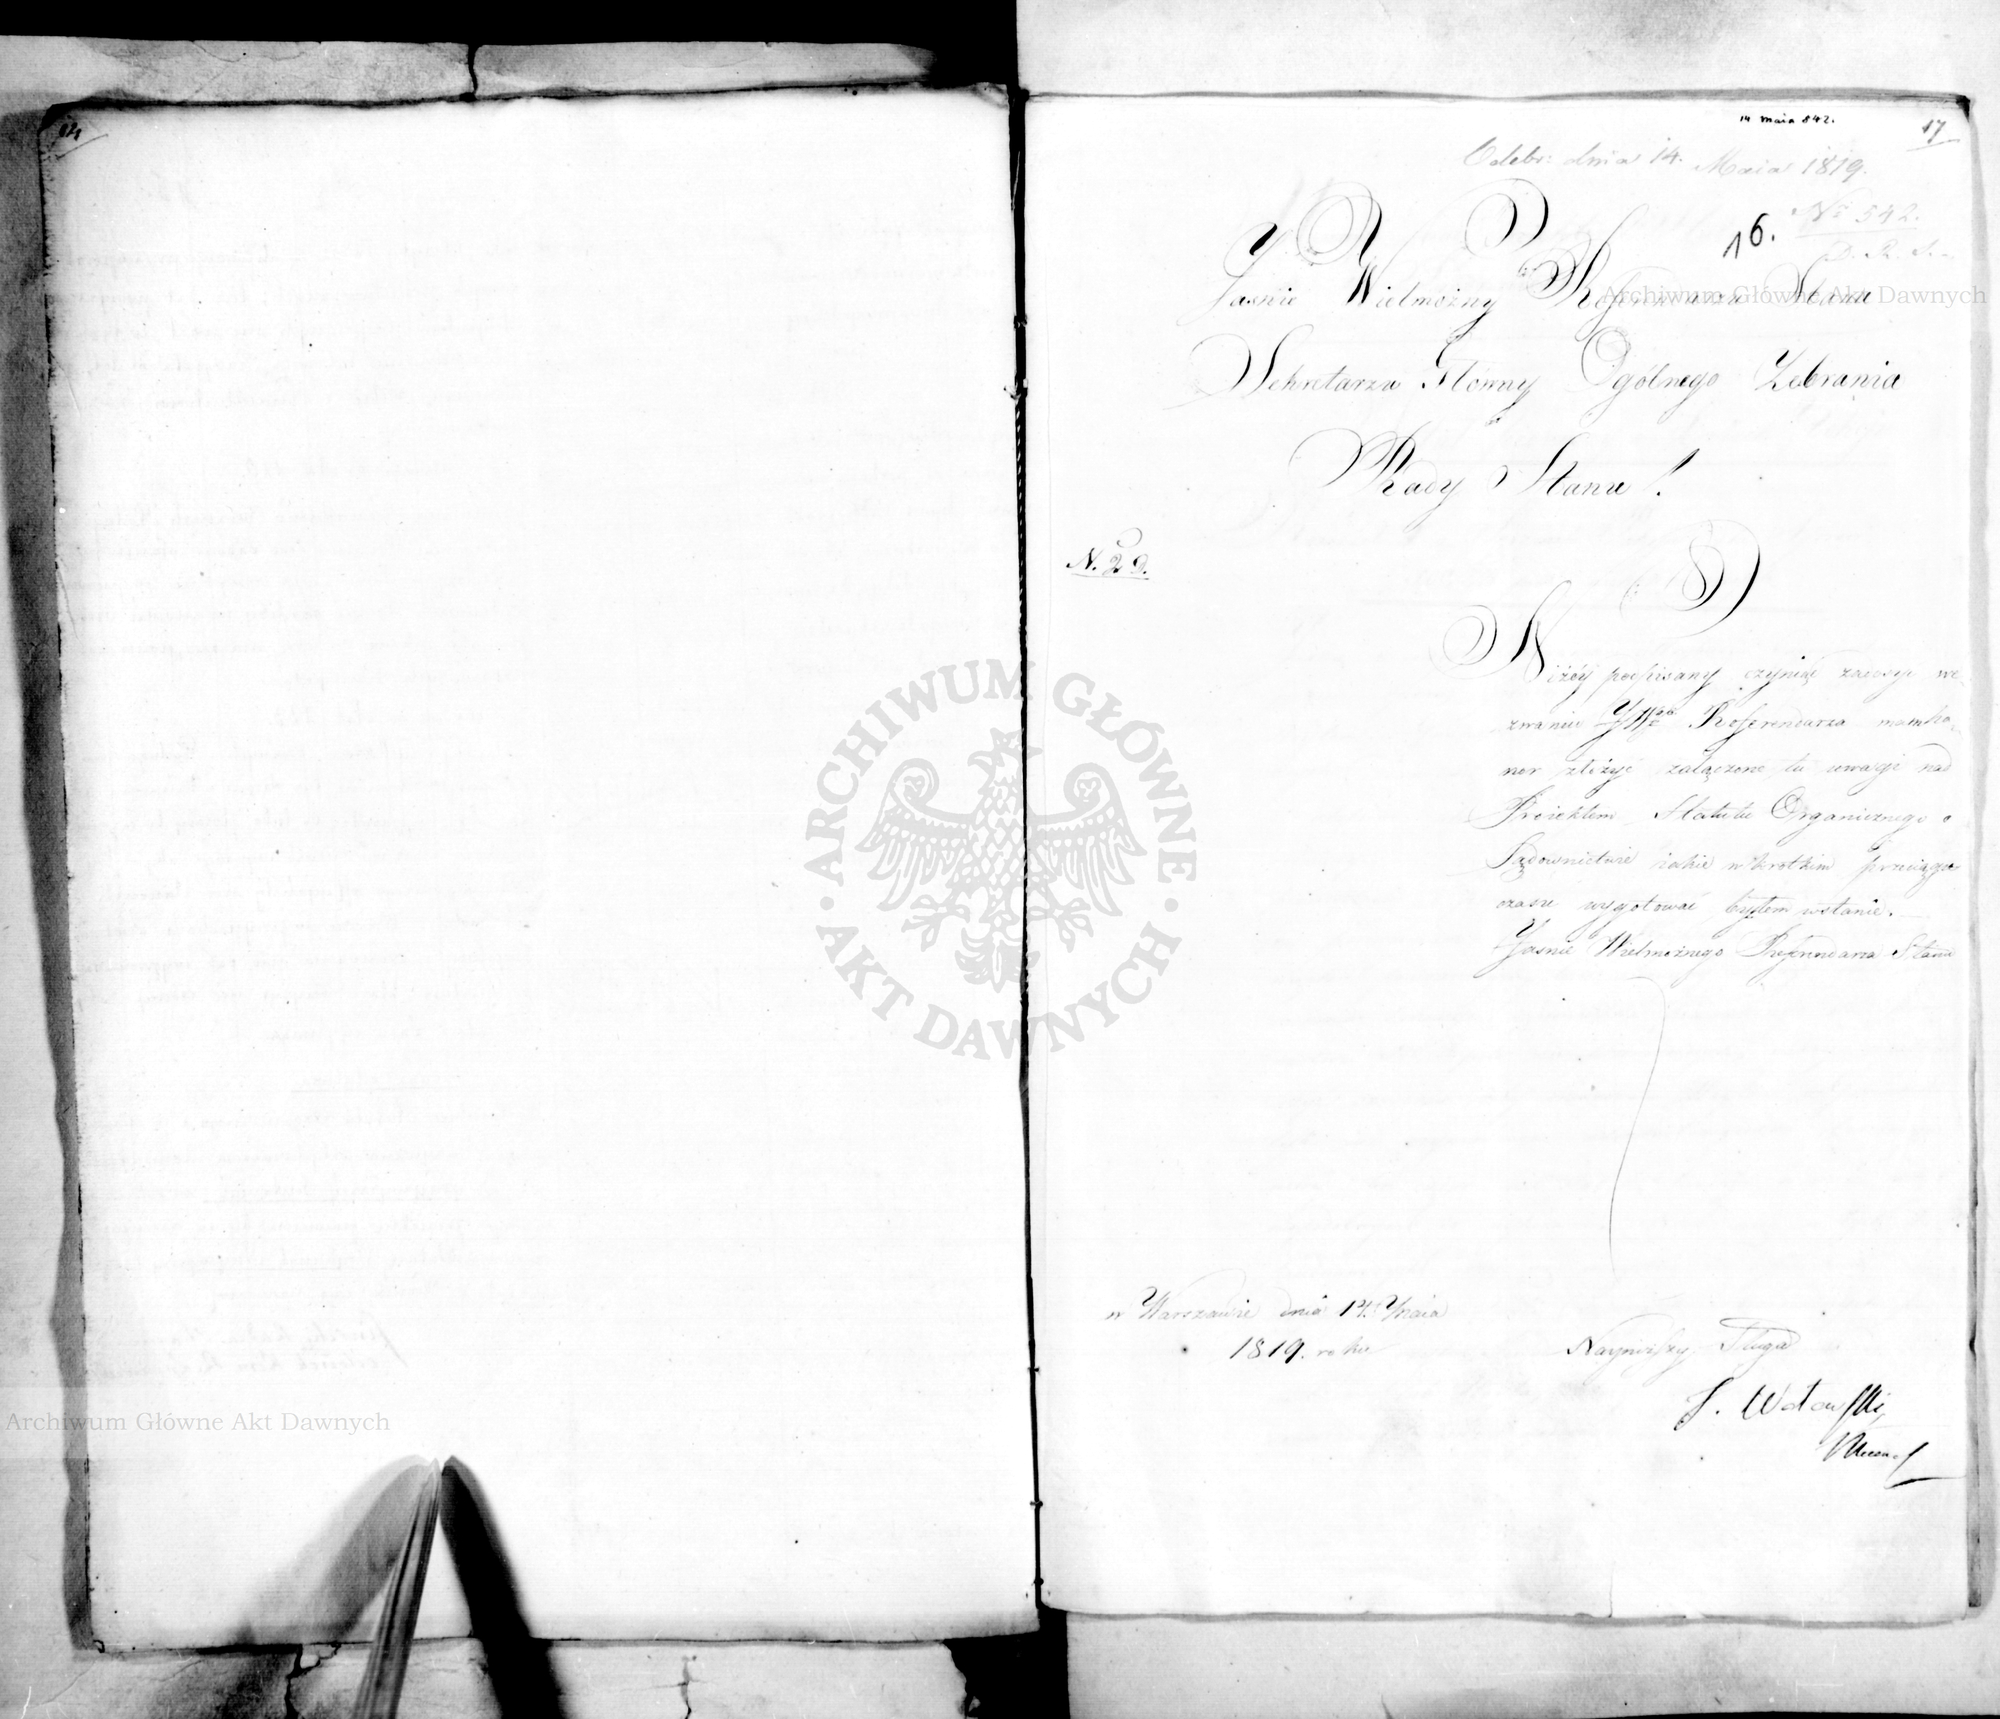 14 maia 542.
17
Odebr: dnia 14. Maia 1819.
No 542.
D. R. S.
16.
Jasnie Wielmożny Referendarzu Stanu
Sekretarzu Główny Ogólnego Zebrania
Rady Stanu!
N. 29.
Niżéy podpisany czyniąc zadosyć we
zwaniu JWgo Referendarza mam ho
nor złożyć załączone tu uwagi nad
Proiektem Statutu Organicznego o
Sądownictwie iakie w krotkim przeciągu
czasu wygotować byłem wstanie.
Jasnie Wielmożnego Referendarza Stanu
w Warszawie dnia 14. Maia
1819. roku
Nayniższy Sługa
Archiwum Główne Akt Dawnych
Archiwum Główne Akt Dawnych
ARCHIWUM GŁÓWNE AKT DAWNYCH